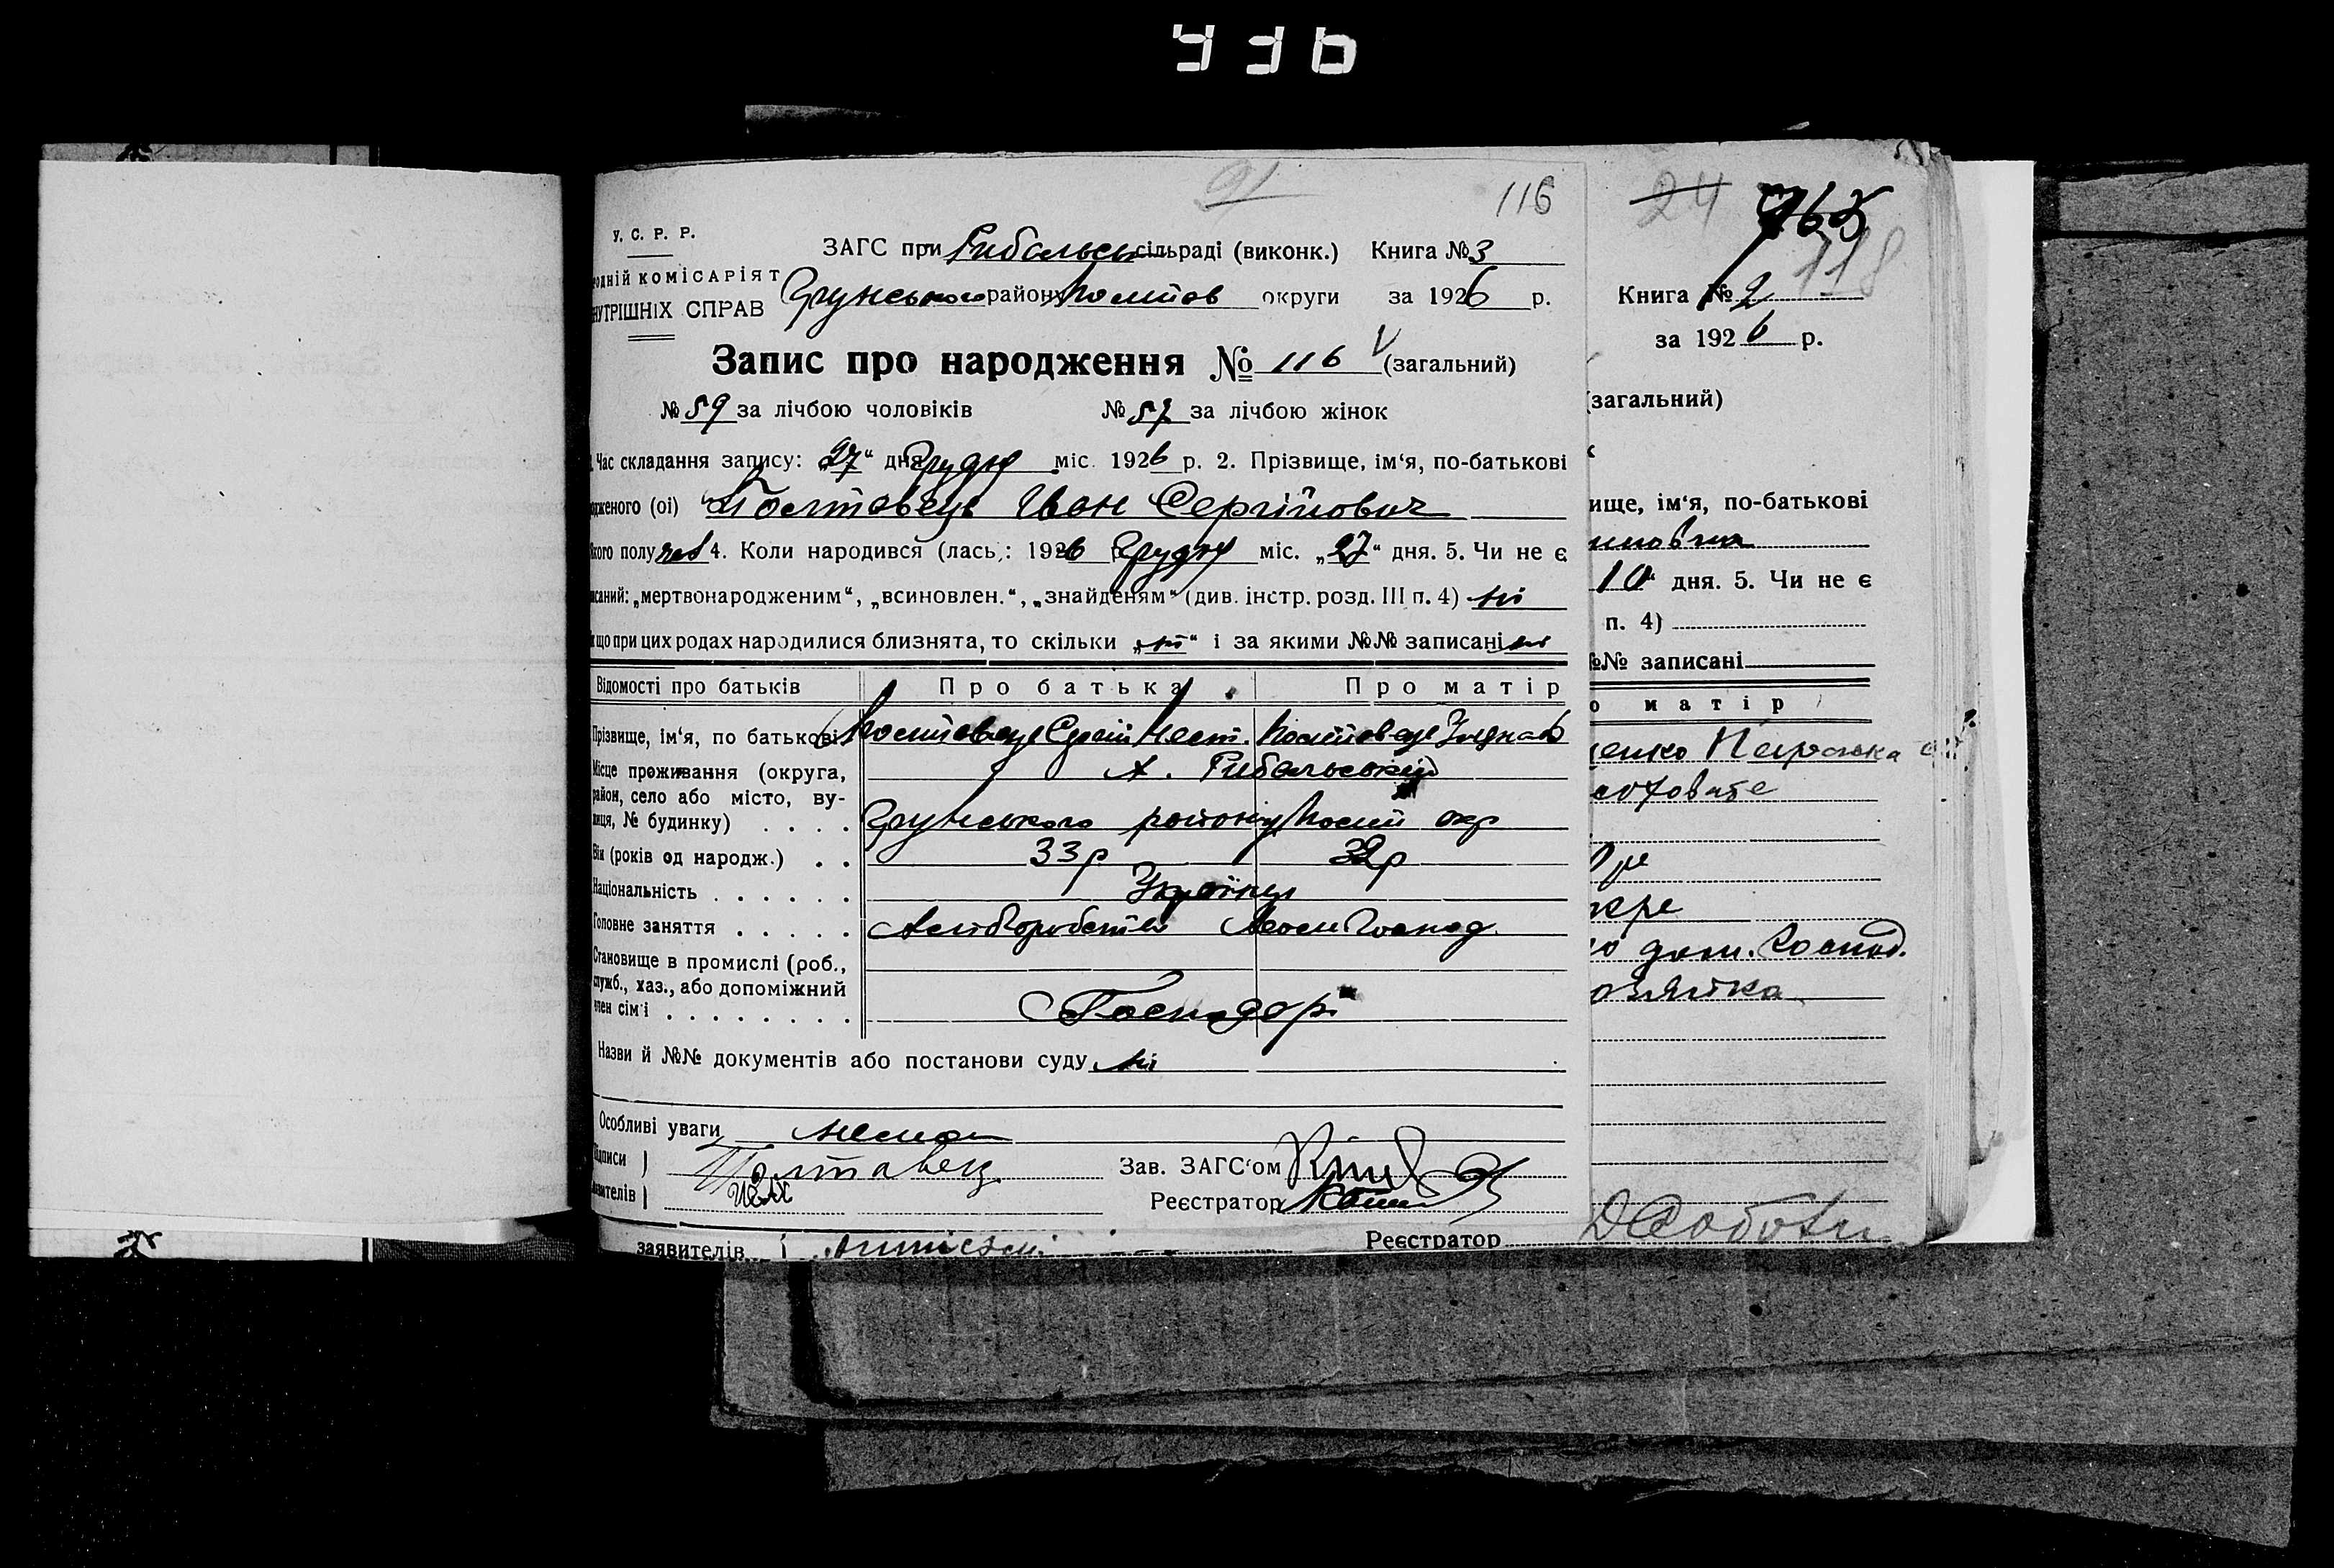 436
91
116
У. С. Р. Р.
ЗАГС при Рибальськ сільраді (виконк.) Книга № 3
одній КОМІСАРІЯТ
НУТРІШНІХ СПРАВ
Грунського району Полтав округи за 1926 р.
Запис про народження № 116 (загальний)
№ 59 за лічбою чоловіків № 57 за лічбою жінок
Час складання запису: 27“ дня Грудня міс. 1926 р. 2. Прізвище, ім‘я, по-батькові
одженого (ої) Полтавець Іван Сергійович
якого полу чол 4. Коли народився (лась): 1926 Грудня міс. „27“ дня. 5. Чи не є
исаний: „мертвонародженим“, „всиновлен.“, „знайденям“ (див. інстр. розд. III п. 4) ні
що при цих родах народилися близнята, то скільки „ні“ і за якими №№ записані ні
Відомості про батьків Про батька Про матір
Прізвище, ім‘я, по батькові Полтавець Сергій Нест. Полтавець
Місце проживання (округа, х. Рибальський
район, село або місто, ву-
лиця, № будинку) . . . . Грунського району Полт окр
Вік (років од народж.) . . 33р 32р
Національність . . . . . . Українці
Головне заняття . . . . . Хліборобство Господ.
Становище в промислі (роб.,
служб., хаз., або допоміжний
член сім‘ї . . . . . . . . Господарі
Назви й №№ документів або постанови суду ні
Особливі уваги немає
Підписи ) Полтавець Зав. ЗАГС‘ом
явителів ) Реєстратор
заявителів Реєстратор
24 765
118
Книга № 2
за 1926 р.
(загальний)
ище, ім‘я, по-батькові
10“ дня. 5. Чи не є
п. 4)
№№ записані
о матір
енко
укре
дом. Господ.